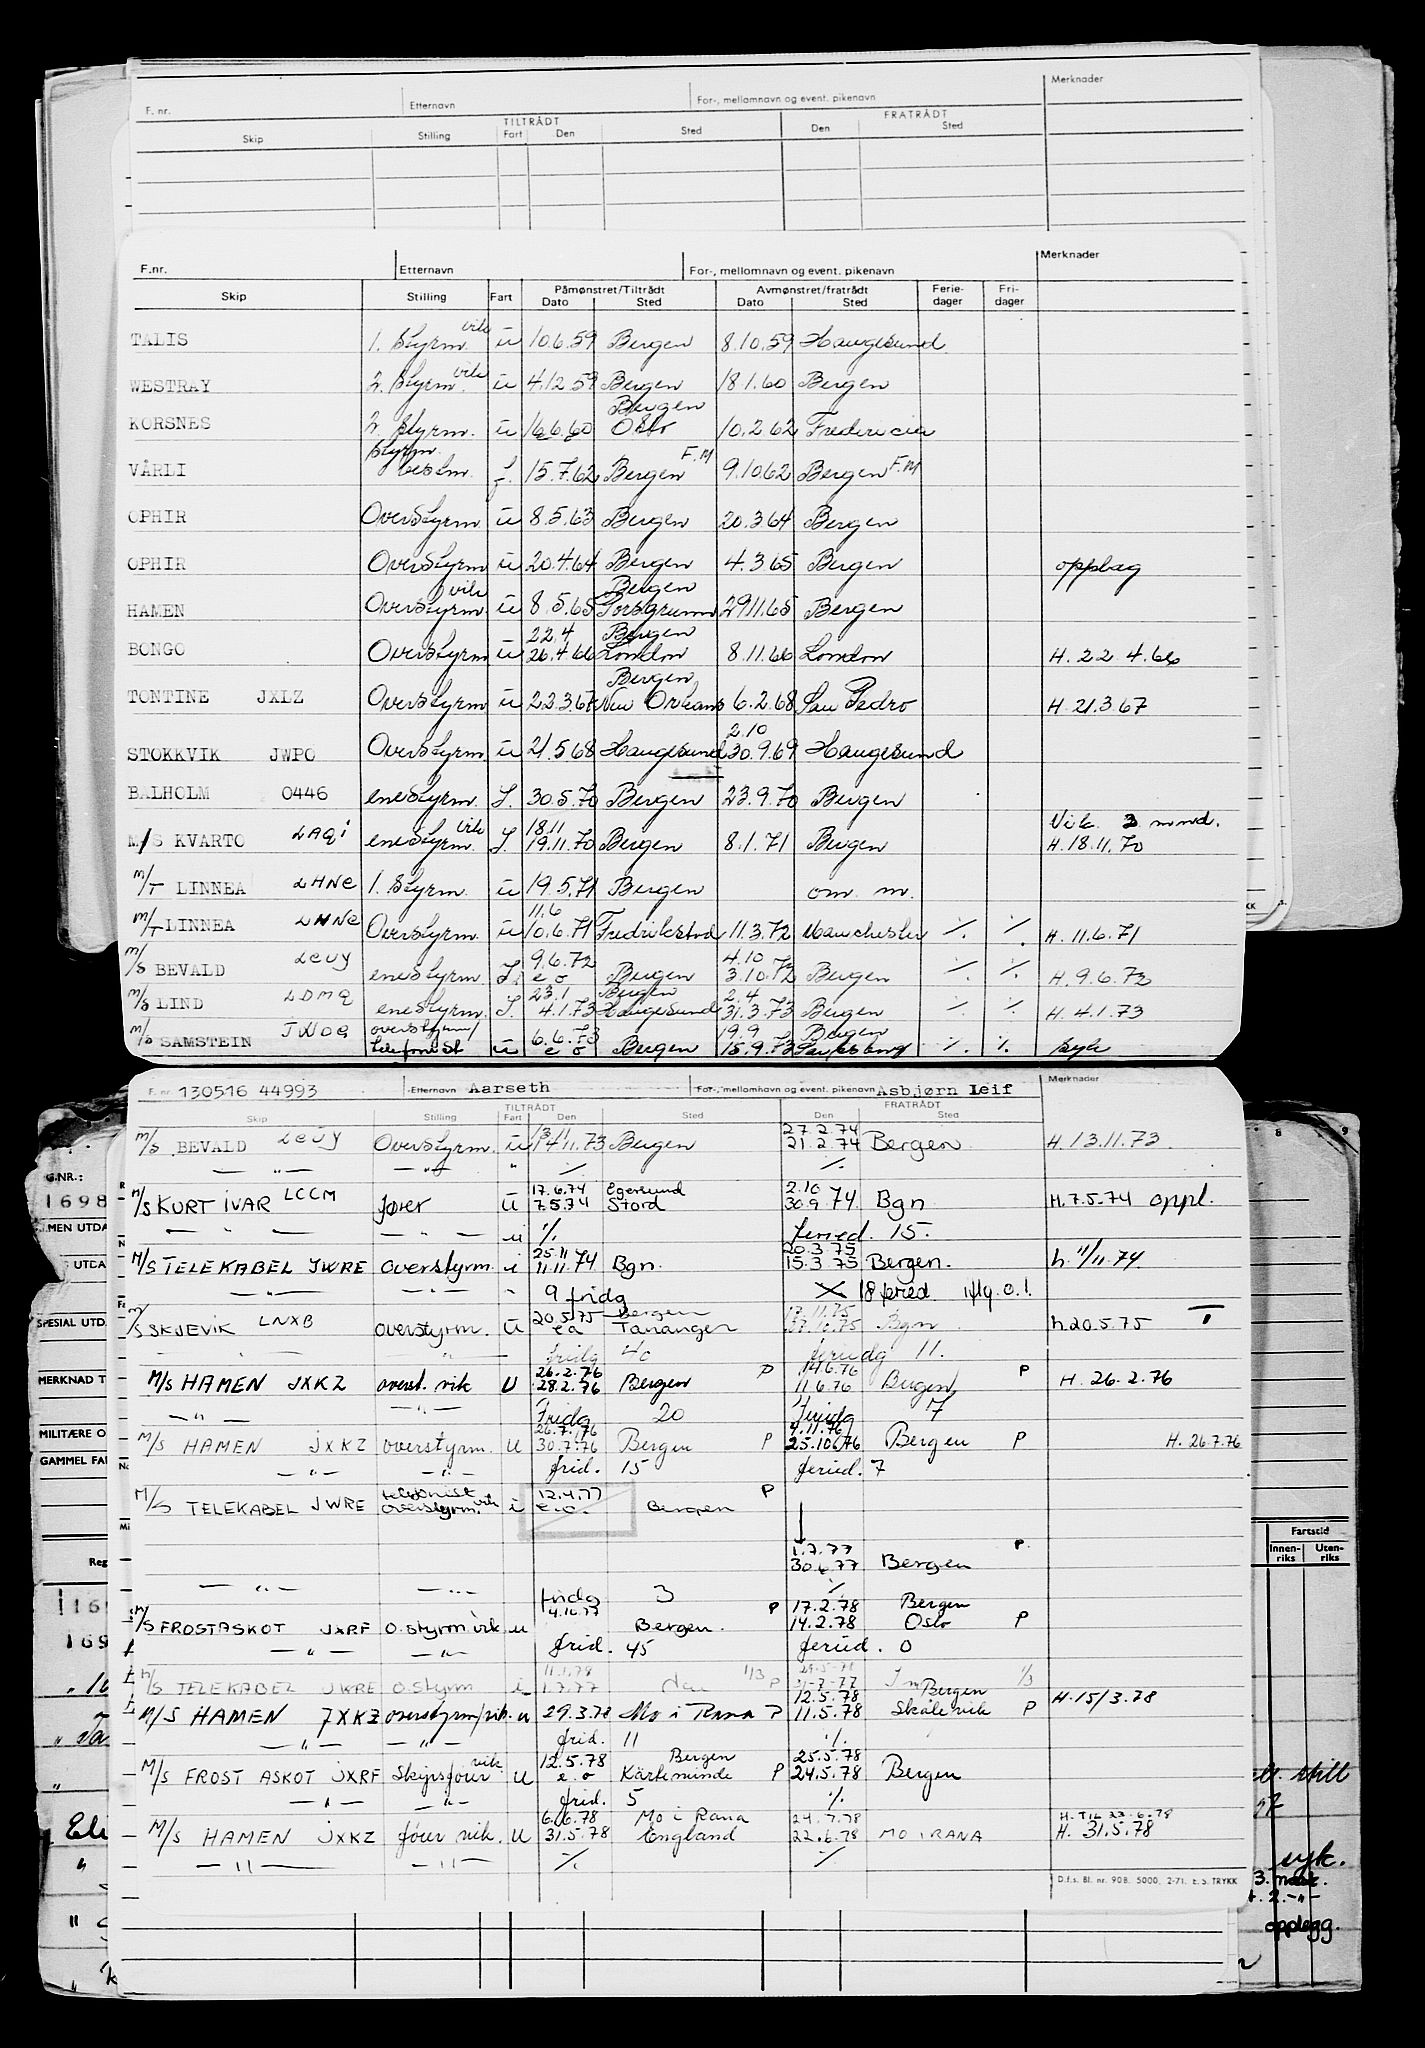 F. nr. Etternavn For-, mellomnavn og event. pikenavn Merknader
TILTRÅDT FRATRÅDT
Skip Stilling Fart Den Sted Den Sted
F.nr. Etternavn For-, mellomnavn og event. pikenavn Merknader
Påmønstret/Tiltrådt Avmønstret/fratrådt Ferie- Fri-
Skip Stilling Fart Dato Sted Dato Sted dager dager
TALIS 1. styrm. vik u 10.6.59 Bergen 8.10.59 Haugesund
WESTRAY 2. styrm. vik u 4.12.59 Bergen 18.1.60 Bergen
Bergen
KORSNES 2. styrm. u 16.6.60 Oslo 10.2.62 Fredericia
styrm.
VÅRLI bestm. f. 15.7.62 Bergen F.M 9.10.62 Bergen F.M
OPHIR Overstyrm. u 8.5.63 Bergen 20.3.64 Bergen
OPHIR Overstyrm u 20.4.64 Bergen 4.3.65 Bergen oppbag
vik Bergen
HAMEN Overstyrm. u 8.5.65 Porsgrunn 29.11.65 Bergen
22.4 Bergen
BONGO Overstyrm u 26.4.66 London 8.11.66 London H. 22.4.66
Bergen
TONTINE JXLZ Overstyrm u 22.3.67 New Orleans 6.2.68 San Pedro H. 21.3.67
2.10
STOKKVIK JWPO Overstyrm u 21.5.68 Haugesund 30.9.69 Haugesund
BALHOLM 0446 enestyrm. I. 30.5.70 Bergen 23.9.70 Bergen
vik 18.11 Vik. 3 mnd.
M/S KVARTO LAQI enestyrm. I. 19.11.70 Bergen 8.1.71 Bergen H.18.11.70
M/T LINNEA LHNC 1. styrm. u 19.5.71 Bergen om. m.
11.6
M/T LINNEA LHNC Overstyrm. u 10.6.71 Fredrikstad 11.3.72 Manchester ./. ./. H. 11.6.71
9.6.72 4.10
M/S BEVALD LEUY enestyrm I. e o Bergen 3.10.72 Bergen ./. ./. H. 9.6.72
23.1 Bergen 2.4
M/S LIND LDMQ enestyrm. I. 4.1.73 Haugesund 31.3.73 Bergen ./. ./. H. 4.1.73
overstyrm/ 6.6.73 19.9 Bergen
M/S SAMSTEIN JWOQ telefonist u e o Bergen 15.9.73 ./. ./. syk
F. nr. 130516 44993 Etternavn Aarseth For-, mellomnavn og event. pikenavn Asbjørn Leif Merknader
TILTRÅDT FRATRÅDT
Skip Stilling Fart Den Sted Den Sted
13 27.2.74
M/S BEVALD LEUY Overstyrm. u 14.11.73 Bergen 21.2.74 Bergen H. 13.11.73
— " — — " — " ./. ./.
17.6.74 Egersund 2.10
M/S KURT IVAR LCCM fører U 7.5.74 Stord 30.9.74. Bgn H.7.5.74 oppl.
— " — — " — u ./. feried. 15.
25.11 20.3.75
M/S TELEKABEL JWRE overstyrm. i 11.11.74 Bgn. 15.3.75 Bergen. h. 11/11.74
— " — — " — " 9 fridg 18 feried
20.5.75 Bergen 17.11.75
M/S SKJEVIK LNXB overstyrm. U ea Tananger Bgn h 20.5.75 T
" fridg 40 feriedg 11.
26.2.76 P 14.6.76 P
M/S HAMEN JXKZ overst. vik U 28.2.76 Bergen 11.6.76 Bergen H. 26.2.76
— " — — " — Fridg 20 feriedg 7
26.7.76 4.11.76
M/S HAMEN JXKZ overstyrm. u 30.7.76 Bergen P 25.10.76 Bergen P H. 26.7.76
— " — — " — frid. 15 feried. 7
telefonist 12.4.77 P
M/S TELEKABEL JWRE overstyrm. vik i e.o. Bergen
1.7.77 P
30.6.77 Bergen
— " — — " — fridg 3 ./.
4.10.77 P 17.2.78 Bergen
M/S FROSTASKOT JXRF o.styrm vik u Bergen. 14.2.78 Oslo P
— " — — " — frid. 45 feried. 0
11.1.78 1/3 1/3
M/S TELEKABEL JWRE o.styrm i 1.7.77 P
12.5.78 Bergen H.15/3.78
M/S HAMEN JXKZ overstyrm/vik. u 29.3.78 Mo i Rana P 11.5.78 Skålevik P
— " — — " — frid. 11 ./.
vik 12.5.78 Bergen 25.5.78
M/S FROST ASKOT JXRF Skipsfører U e. o Kerteminde P 24.5.78 Bergen
— " — — " — frid. 5 ./.
6.6.78 Mo i Rana 24.7.78 H. TIL 22.6.78
M/S HAMEN JXKZ fører vik. U 31.5.78 England 22.6.78 MO I RANA H. 31.5.78
— " — — " — ./. ./.
D.f.s. Bl. nr. 90B. 5000. 2-71. E.S. TRYKK
G.NR.:
1698
SPESIAL UTD.
MERKNAD T
MILITÆRE O
GAMMEL FAR
Reg
Fartstid
Innen- Uten-
riks riks
syk.
opplegg.